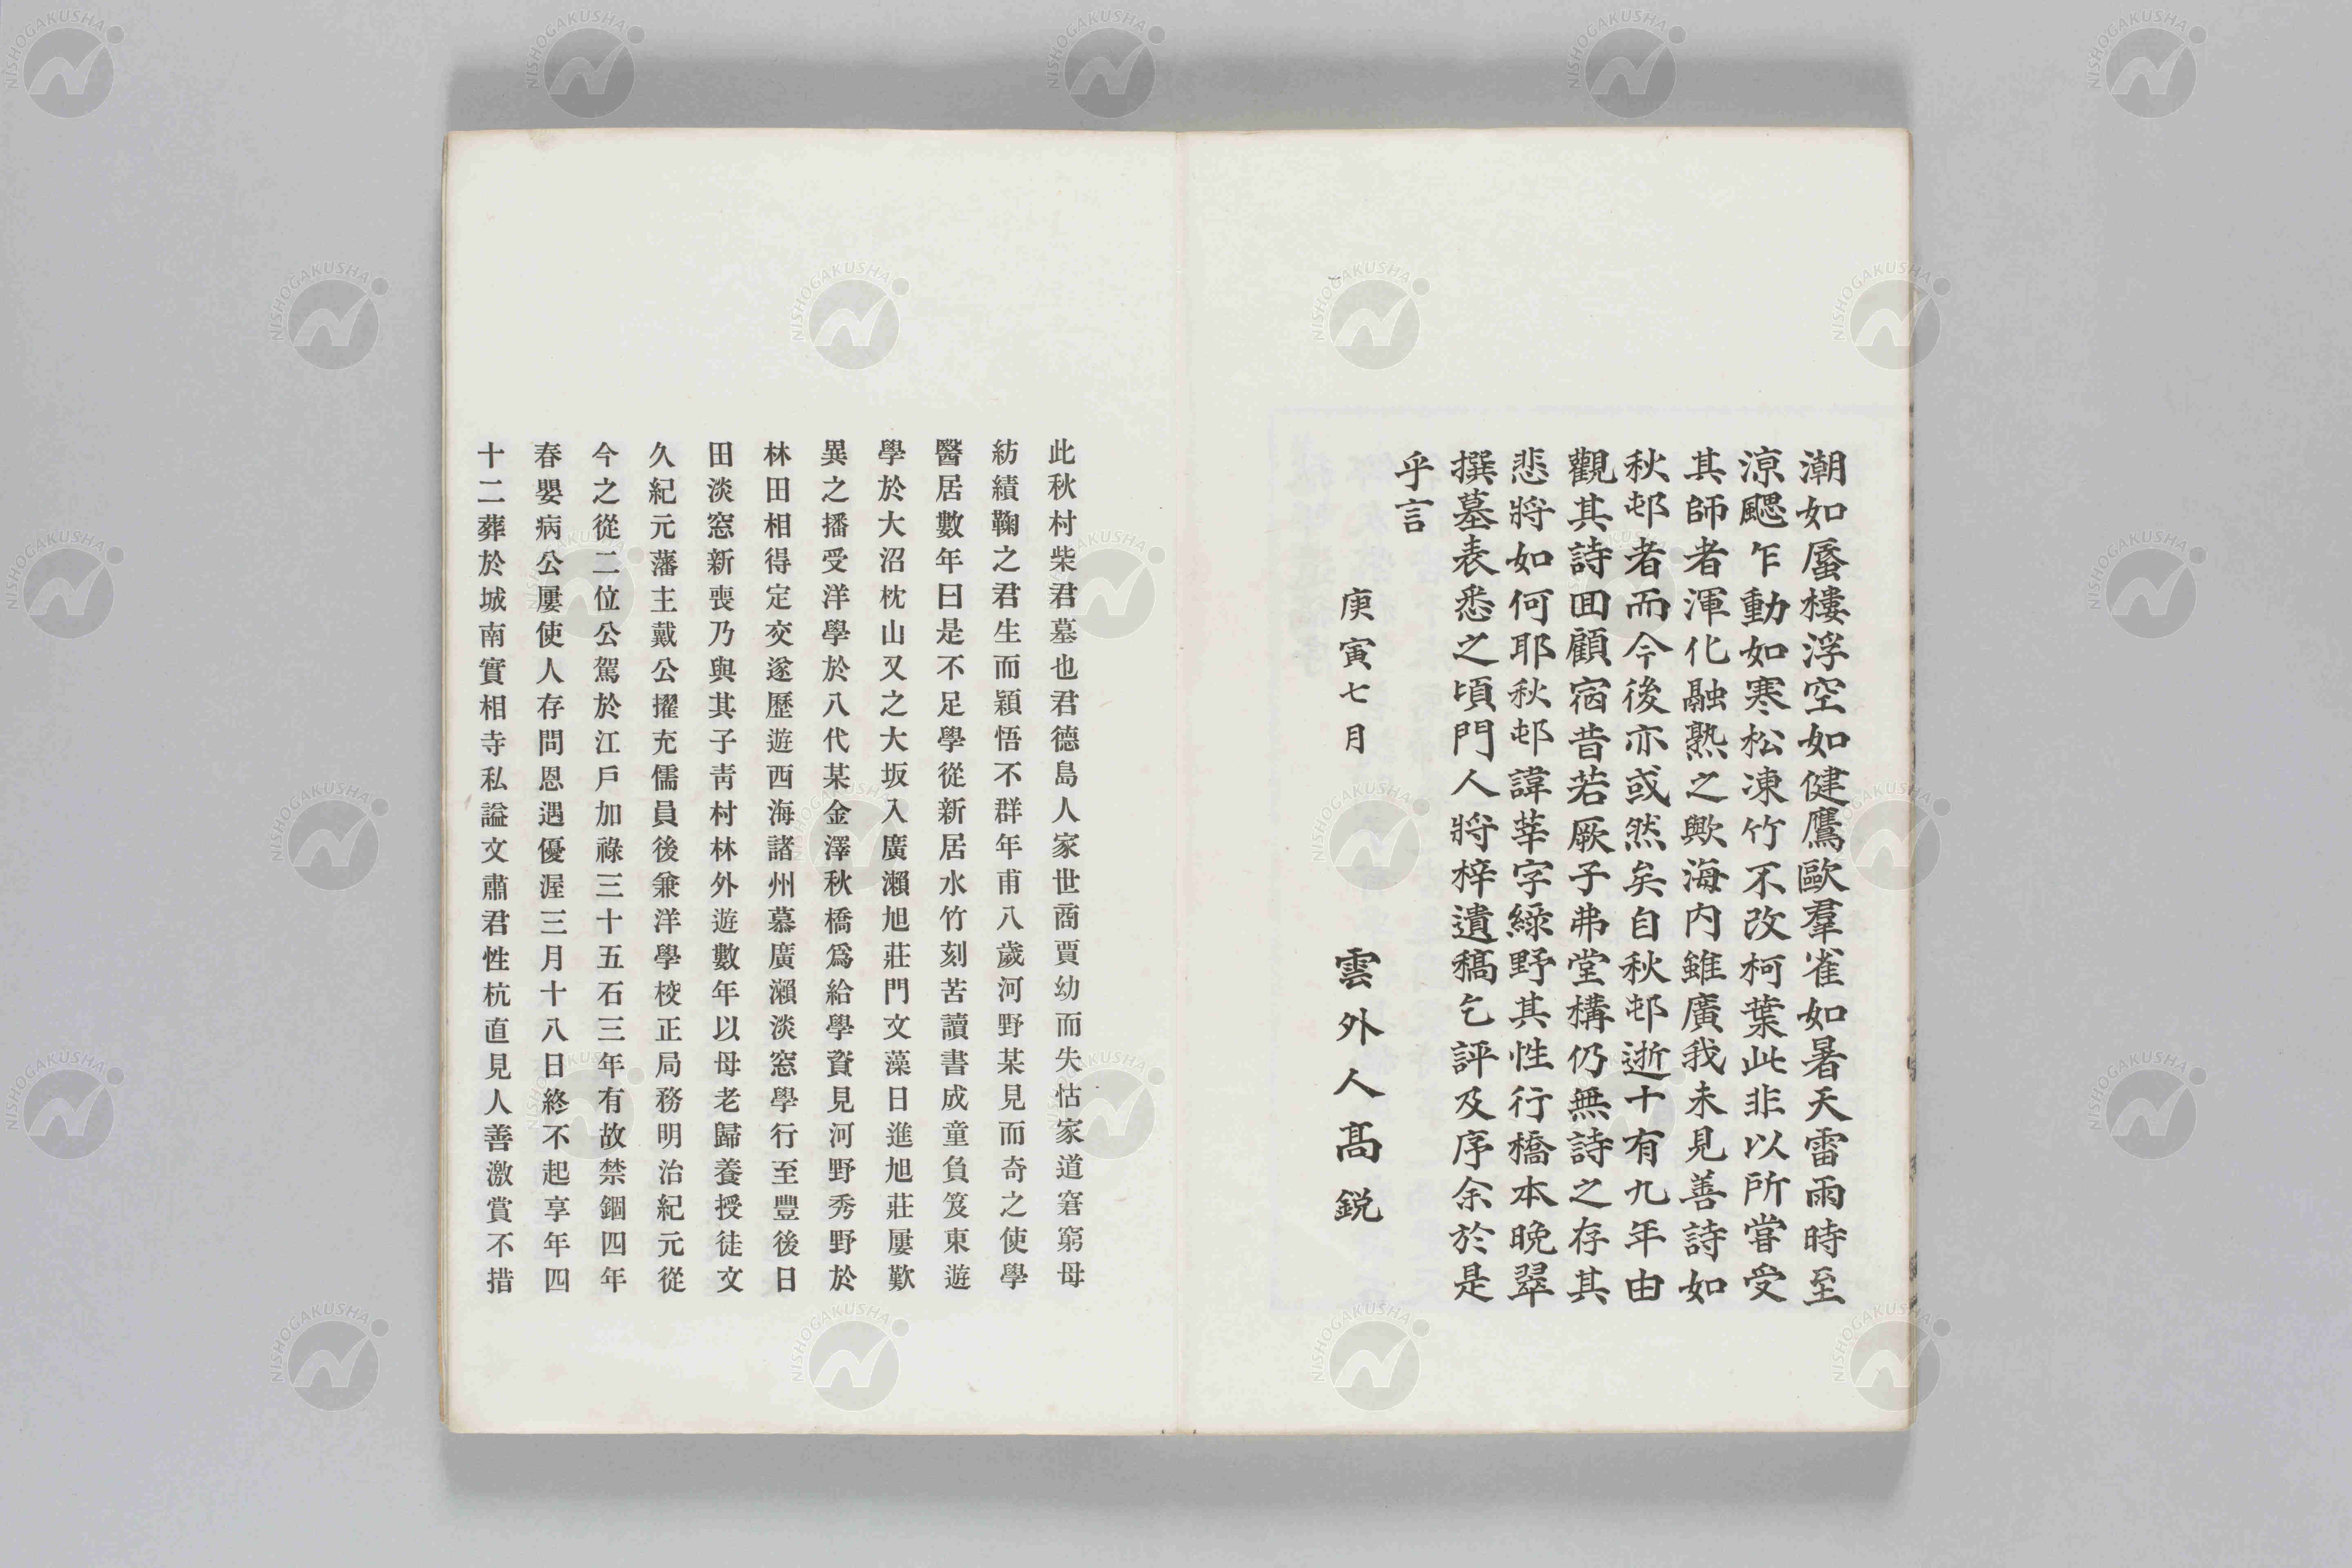 潮如蜃樓浮空如健鷹歐羣雀如暑天雷雨時至
涼颸乍動如寒松凍竹不改柯葉此非以所甞受
其師者渾化融熟之歟海内雖廣我未見善詩如
秋邨者而今後亦或然矣自秋邨逝十有九年由
觀其詩回顧宿昔若厥子弗堂構仍無詩之存其
悲將如何耶秋邨諱莘字緑野其性行橋本晩翠
撰墓表悉之頃門人將梓遺稿乞評及序余於是
乎言
庚寅七月
雲外人髙鋭
此秋村柴君墓也君德島人家世商賈幼而失怙家道窘窮母
紡績鞠之君生而穎悟不群年甫八歲河野某見而奇之使學
醫居數年曰是不足學從新居水竹刻苦讀書成童負笈東遊
學於大沼枕山又之大坂入廣瀨旭莊門文藻日進旭莊屢歎
異之播受洋學於八代某金澤秋橋爲給學資見河野秀野於
林田相得定交遂歷遊西海諸州慕廣瀨淡窓學行至豐後日
田淡窓新喪乃與其子靑村林外遊數年以母老歸養授徒文
久紀元藩主戴公擢充儒員後兼洋學校正局務明治紀元從
今之從二位公駕於江戶加祿三十五石三年有故禁錮四年
春嬰病公屢使人存問恩遇優渥三月十八日終不起享年四
十二葬於城南實相寺私謚文肅君性杭直見人善激賞不措
NISHOGAKUSHA